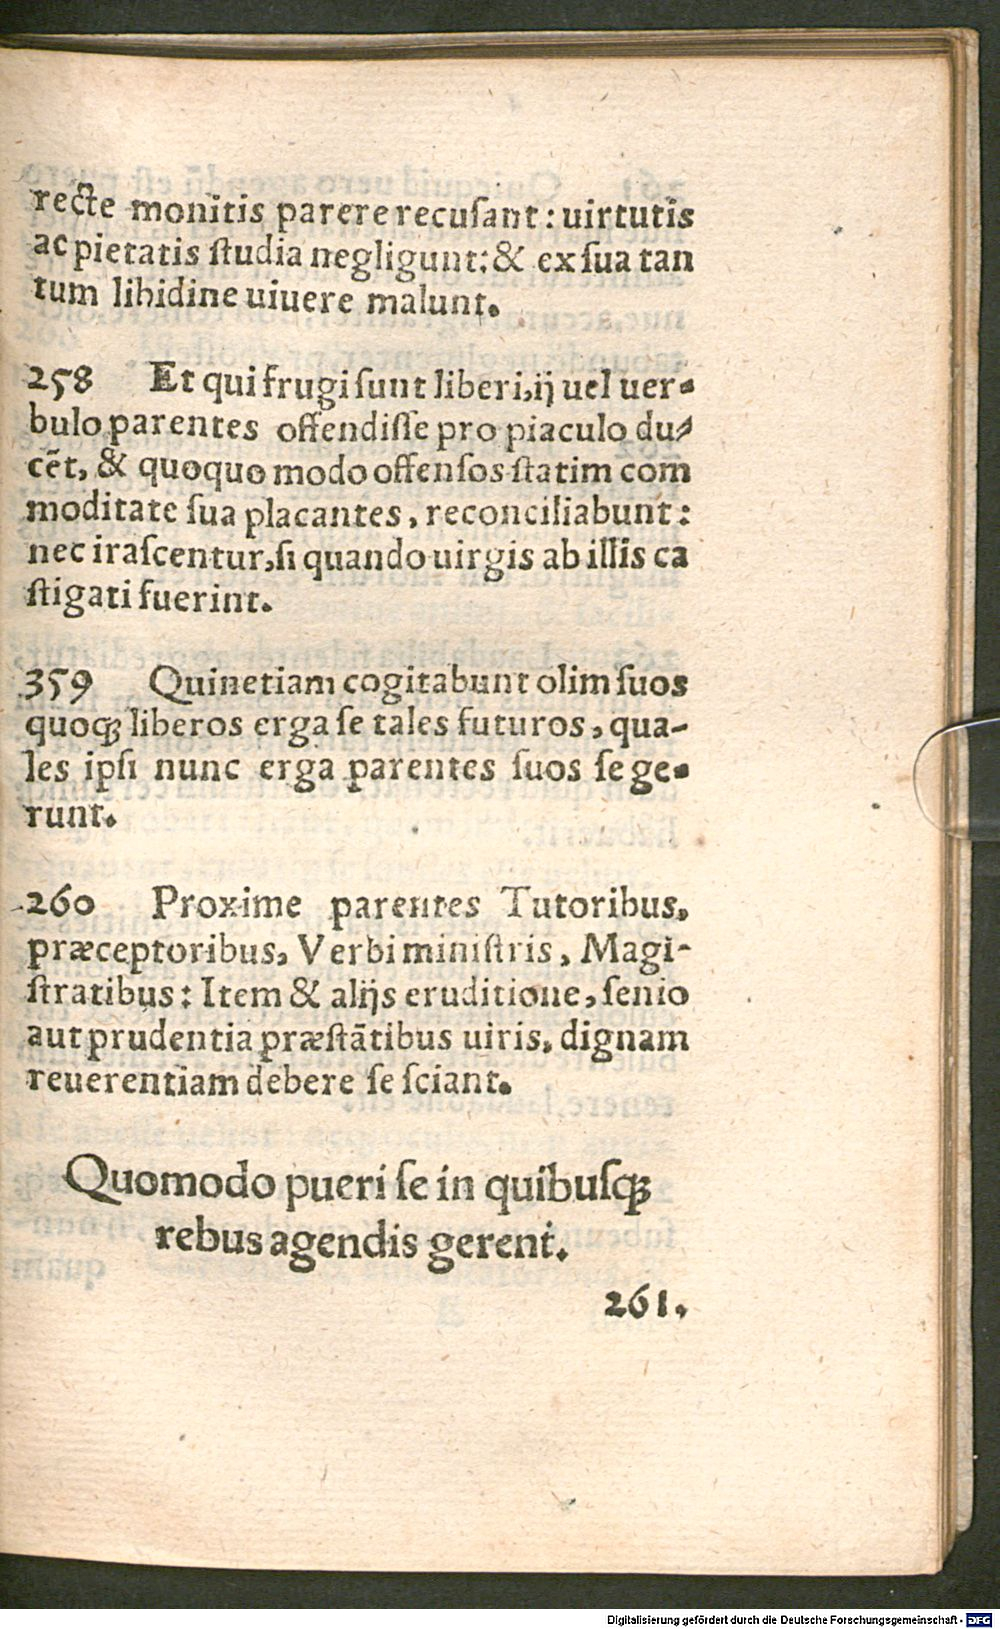 recte monitis parere recuſant: uirtutis
ac pietatis ſtudia negligunt: & ex ſua tan
tum libidine uiuere malunt.
258 Et qui frugi ſunt liberi, ij uel uer-
bulo parentes offendiſſe pro piaculo du-
cēt, & quoquo modo offenſos ſtatim com
moditate ſua placantes, reconciliabunt:
nec iraſcentur, ſi quando uirgis ab illis ca
ſtigati fuerint.
359 Quinetiam cogitabunt olim ſuos
quoqꝫ liberos erga ſe tales futuros, qua-
les ipſi nunc erga parentes ſuos ſe ge-
runt.
260 Proxime parentes Tutoribus,
præceptoribus, Verbi miniſtris, Magi-
ſtratibus: Item & alijs eruditione, ſenio
aut prudentia præſtātibus uiris, dignam
reuerentiam debere ſe ſciant.
Quomodo pueri ſe in quibuſqꝫ
rebus agendis gerent.
261.
Digitalisierung gefördert durch die Deutsche Forschungsgemeinschaft - DFG